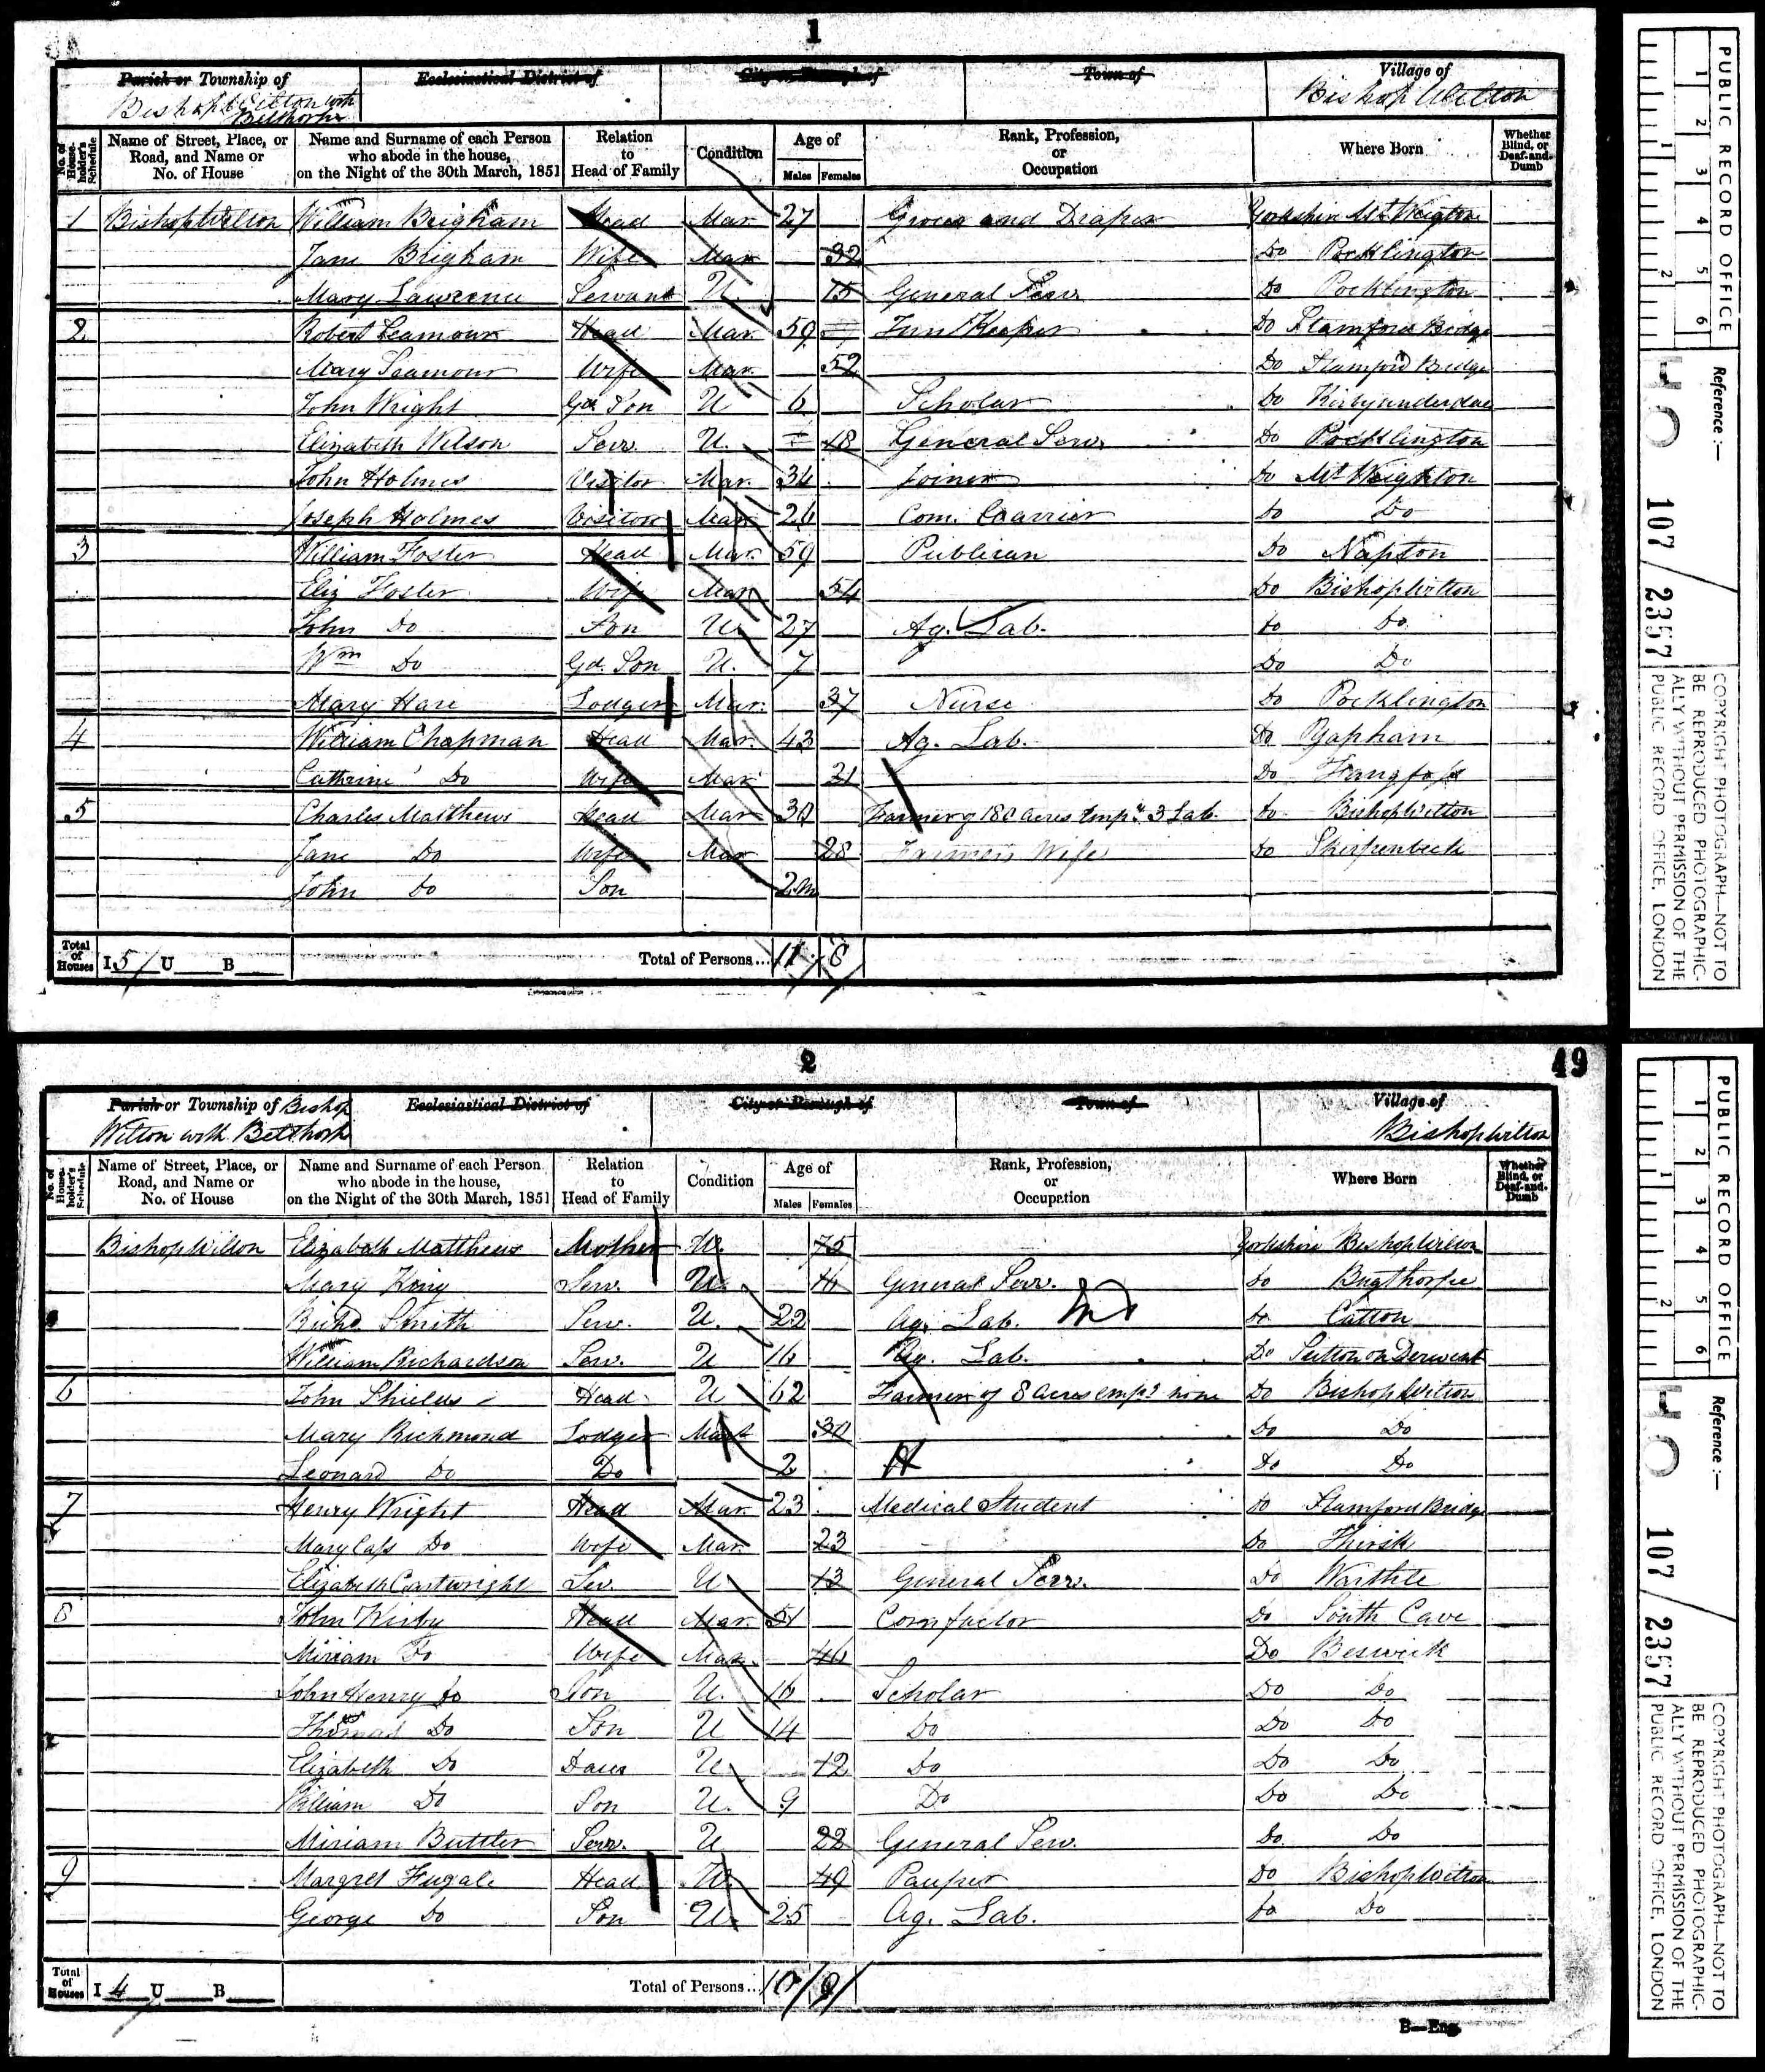 1
Parish or Township of
Ecclesiastical District of
City or Borough of
Town of
Village of
Bishop Wilton with
Belthorpe
Bishop Wilton
No. of House-holder's Schedule
Name of Street, Place, or Road, and Name or No. of House
Name and Surname of each Person who abode in the house, on the Night of the 30th March, 1851
Relation to Head of Family
Condition
Age of
Males Females
Rank, Profession, or Occupation
Where Born
Whether Blind, or Deaf-and-Dumb
1 Bishop Wilton William Brigham Head Mar. 27 Grocer and Draper Yorkshire Mt Weigton
Jane Brigham Wife Mar 32 Do Pocklington
Mary Lawrence Servant U. 15 General Serv. Do Pocklington
2 Robert Seamour Head Mar. 59 Inn Keeper Do Stamford Bridge
Mary Seamour Wife Mar. 52 Do Stamford Bridge
John Wright Gd Son U 6 Scholar Do Kirbyunderdale
Elizabeth Wilson Serv. U. 18 General Serv. Do Pocklington
John Holmes Visitor Mar. 34 Joiner Do Mt Weighton
Joseph Holmes Visitor Mar 26 Com. Carrier Do Do
3 William Foster Head Mar. 59 Publican Do Napton
Eliz Foster Wife Mar 54 Do Bishop Wilton
John Do Son U 27 Ag. Lab. Do Do
Wm Do Gd. Son U. 7 Do Do
Mary Hare Lodger Mar. 37 Nurse Do Pocklington
4 William Chapman Head Mar. 43 Ag. Lab. Do Yapham
Cathrine Do Wife Mar 31 Do Fangfoss
5 Charles Matthews Head Mar 30 Farmer of 180 acres Empg 3 Lab. Do Bishop Wilton
Jane Do Wife Mar 28 Farmer's Wife Do Skirpenbeck
John Do Son 2m
Total of Houses I 5 U B Total of Persons... 11 8
PUBLIC RECORD OFFICE
1 2 3 4 5 6
1 2
Reference :—
HO 107/2357
COPYRIGHT PHOTOGRAPH—NOT TO BE REPRODUCED PHOTOGRAPHICALLY WITHOUT PERMISSION OF THE PUBLIC RECORD OFFICE, LONDON
2
49
Parish or Township of Bishop
Wilton with Belthorpe
Ecclesiastical District of
City or Borough of
Town of
Village of
Bishop Wilton
No. of House-holder's Schedule
Name of Street, Place, or Road, and Name or No. of House
Name and Surname of each Person who abode in the house, on the Night of the 30th March, 1851
Relation to Head of Family
Condition
Age of
Males Females
Rank, Profession, or Occupation
Where Born
Whether Blind, or Deaf-and-Dumb
Bishop Wilton Elizabeth Matthews Mother W. 75 Yorkshire Bishop Wilton
Mary King Serv. U. General Serv. Do Bugthorpe
Richd Smith Serv. U. 22 Ag. Lab. Do Catton
William Richardson Serv. U 16 Ag. Lab. Do Sutton on Derwent
6 John Shields Head U 62 Farmer of 8 Acres empg none Do Bishop Wilton
Mary Richmond Lodger Mar Do Do
Leonard Do Do 2 Do Do
7 Henry Wright Head Mar. 23 Medical Student Do Stamford Bridge
Mary Cass Do Wife Mar. 23 Do Thirsk
Elizabeth Cartwright Ser. U 13 General Serv. Do Warthle
8 John Kirby Head Mar. 51 Cornfactor Do South Cave
Miriam Do Wife Mar. 46 Do Beswick
John Henry Do Son U. 16 Scholar Do Do
Thomas Do Son U 14 Do Do Do
Elizabeth Do Daur U. 12 Do Do Do
William Do Son U. 9 Do Do Do
Miriam Buttler Serv. U 22 General Serv. Do Do
9 Margret Fugale Head W. 49 Pauper Do Bishop Wilton
George Do Son U. 25 Ag. Lab. Do Do
Total of Houses I 4 U B Total of Persons... 10 9
B—Eng.
PUBLIC RECORD OFFICE
1 2 3 4 5 6
1 2
Reference :—
HO 107/2357
COPYRIGHT PHOTOGRAPH—NOT TO BE REPRODUCED PHOTOGRAPHICALLY WITHOUT PERMISSION OF THE PUBLIC RECORD OFFICE, LONDON